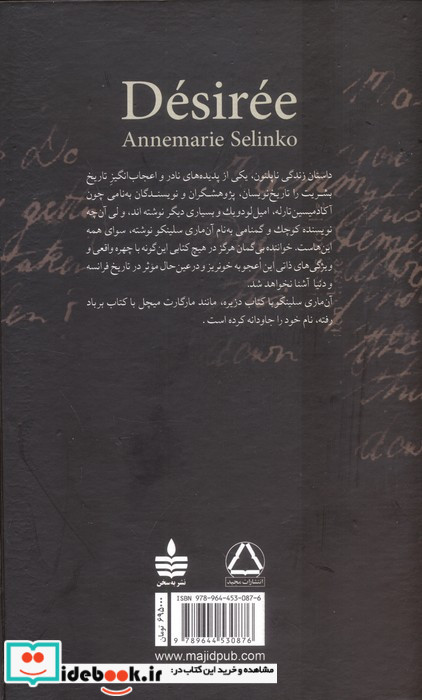 Désirée
Annemarie Selinko
داستان زندگی ناپلئون، یکی از پدیده‌های نادر و اعجاب‌انگیز تاریخ
بشریت را تاریخ‌نویسان، پژوهشگران و نویسندگان به‌نامی چون
آکادمیسین تارله، امیل لودویک و بسیاری دیگر نوشته اند، ولی آن‌چه
نویسنده کوچک و گمنامی به‌نام آن‌ماری سلینکو نوشته، سوای همه
این‌هاست. خواننده بی‌گمان هرگز در هیچ کتابی این‌گونه با چهره واقعی و
ویژگی‌های ذاتی این اعجوبه خونریز و درعین‌حال مؤثر در تاریخ فرانسه
و دنیا آشنا نخواهد شد.
آن‌ماری سلینکو با کتاب دزیره، مانند مارگارت میچل با کتاب برباد
رفته، نام خود را جاودانه کرده است.
نشر به‌سخن
انتشارات مجید
۶۹۵۰۰۰ تومان
ISBN 978-964-453-087-6
9 789644 530876
www.majidpub.com
iidebook.ir
مشاهده و خرید این کتاب در:
down
down